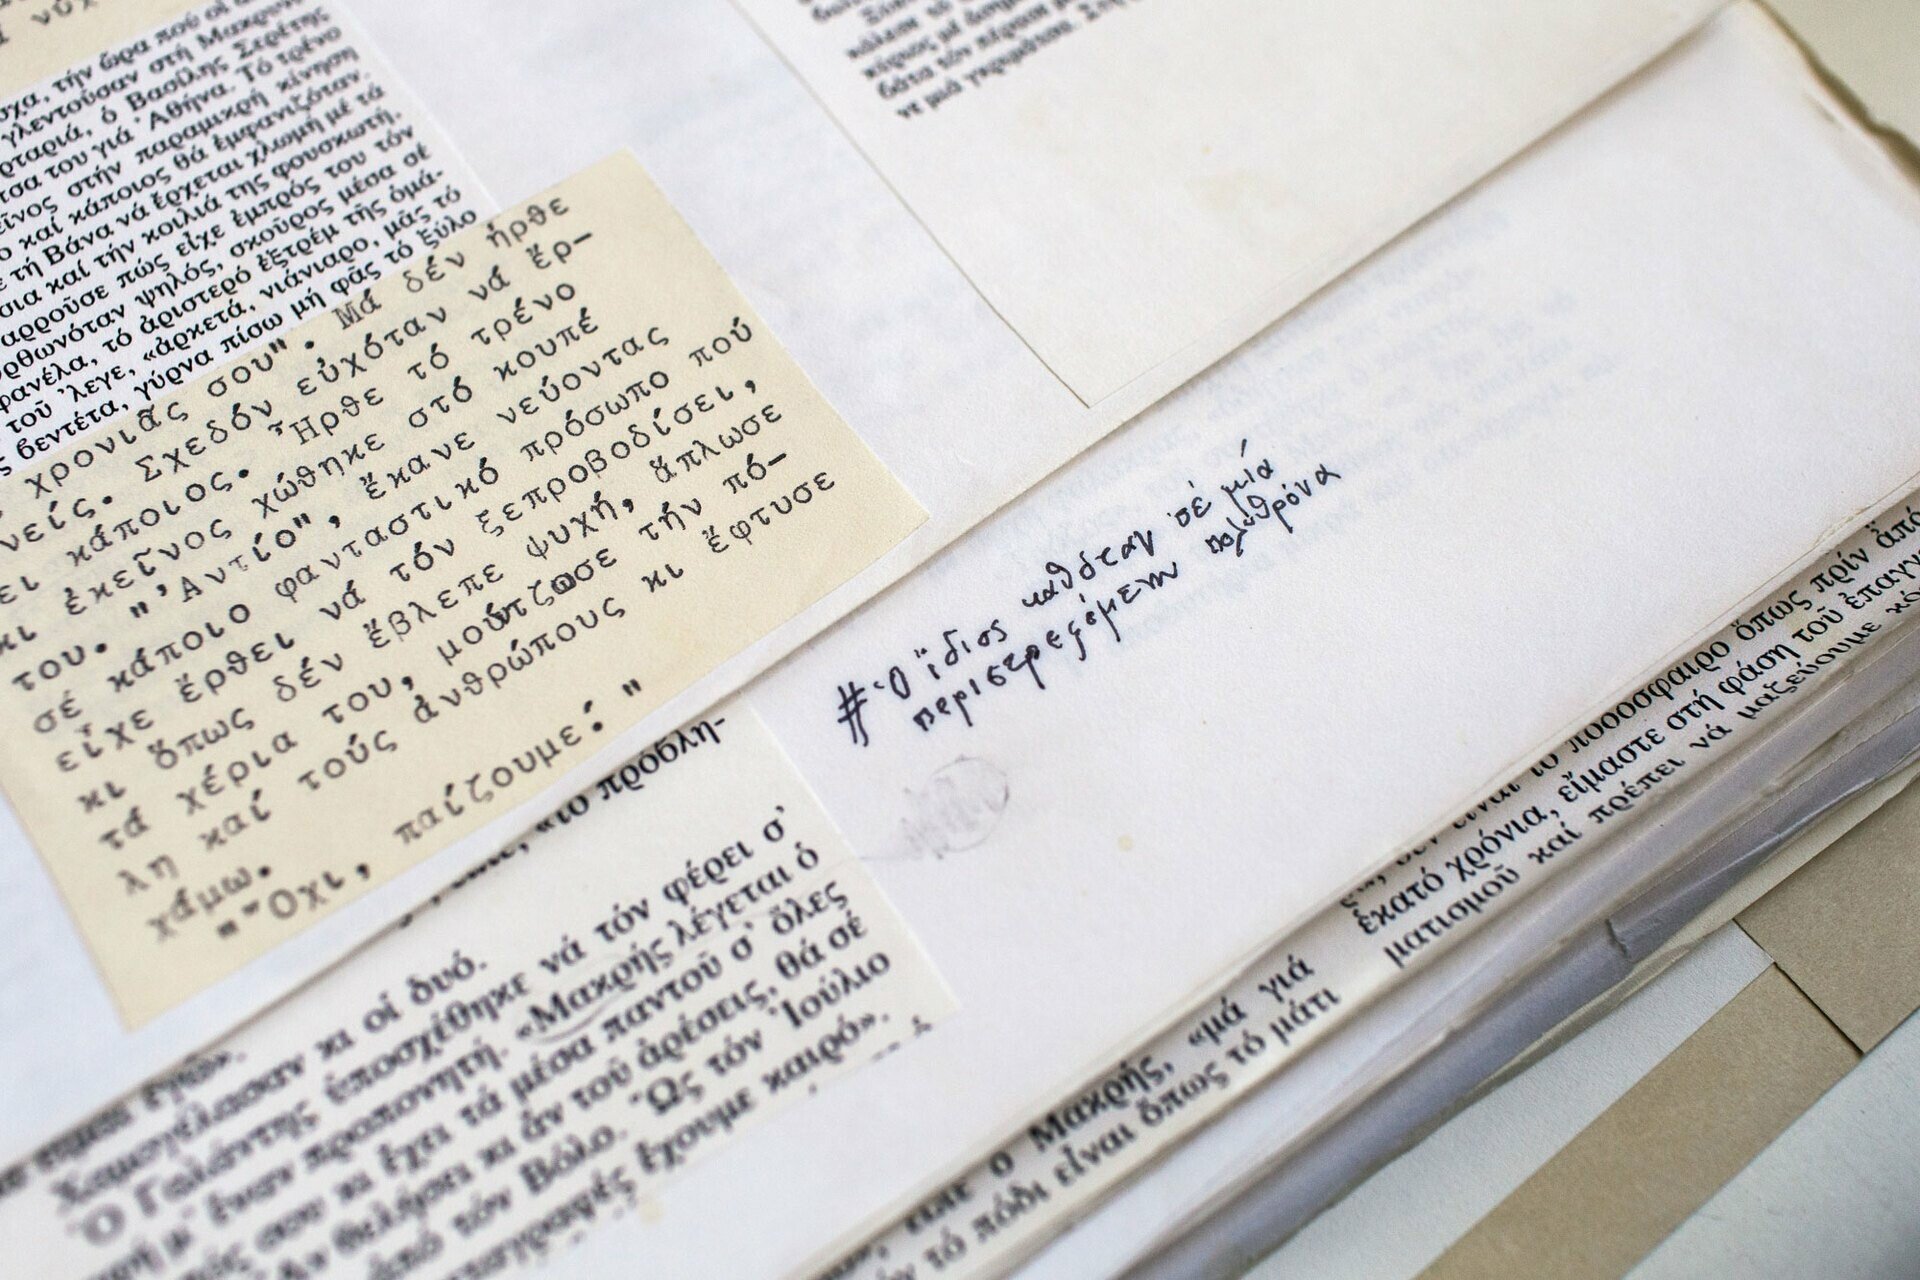 σχα, τήν ὥρα πού οἱ
γλεντούσαν στή Μακρυν
ρταριά, ὁ Βασίλης Σερέτης
τσα του γιά Ἀθήνα. Τό τρένο
εῖνος στήν παραμικρή κίνηση
ο καί κάποιος θά ἐμφανιζόταν.
ε τή Βάνα νά ἔρχεται χλωμή μέ τά
σια καί τήν κοιλιά της φουσκωτή.
αρροῦσε πώς εἶχε ἐμπρός του τόν
ρθωνόταν ψηλός, σκοῦρος μέσα σέ
φανέλα, τό ἀριστερό ἐξτρέμ τῆς ὁμά-
τοῦ 'λεγε, «ἀρκετά, νιάνιαρο, μᾶς τό
ς βεντέτα, γύρνα πίσω μή φᾶς τό ξύλο
χρονιᾶς σου". Μά δέν ἦρθε
νείς. Σχεδόν εὐχόταν νά ἔρ-
ει κάποιος. Ἦρθε τό τρένο
κι ἐκεῖνος χώθηκε στό κουπέ
του. "Ἀντίο", ἔκανε νεύοντας
σέ κάποιο φανταστικό πρόσωπο πού
εἶχε ἔρθει νά τόν ξεπροβοδίσει,
κι ὅπως δέν ἔβλεπε ψυχή, ἅπλωσε
τά χέρια του, μούντζωσε τήν πό-
λη καί τούς ἀνθρώπους κι ἔφτυσε
χάμω.
""Οχι, παίζουμε."
«τό πρόβλη-
Χαμογέλασαν κι οἱ δυό.
Ὁ Γαλάντης ὑποσχέθηκε νά τόν φέρει σ'
ἕναν προπονητή. «Μακρής λέγεται ὁ
σου κι ἔχει τά μέσα παντοῦ σ' ὅλες
Ἄν θελήσει κι ἄν τοῦ ἀρέσεις, θά σέ
ἀπό τόν Βόλο. Ὥς τόν Ἰούλιο
ἔχουμε καιρό».
# Ὁ ἴδιος καθόταν σέ μία
περιστρεφόμενη πολυθρόνα
νε μιά
εἶναι τό ποδόσφαιρο ὅπως πρίν ἀπό
ἑκατό χρόνια, εἴμαστε στή φάση τοῦ ἐπαγγ
ματισμοῦ καί πρέπει νά μαζεύουμε
ὁ Μακρής, «μά γιά
τό πόδι εἶναι ὅπως τό μάτι